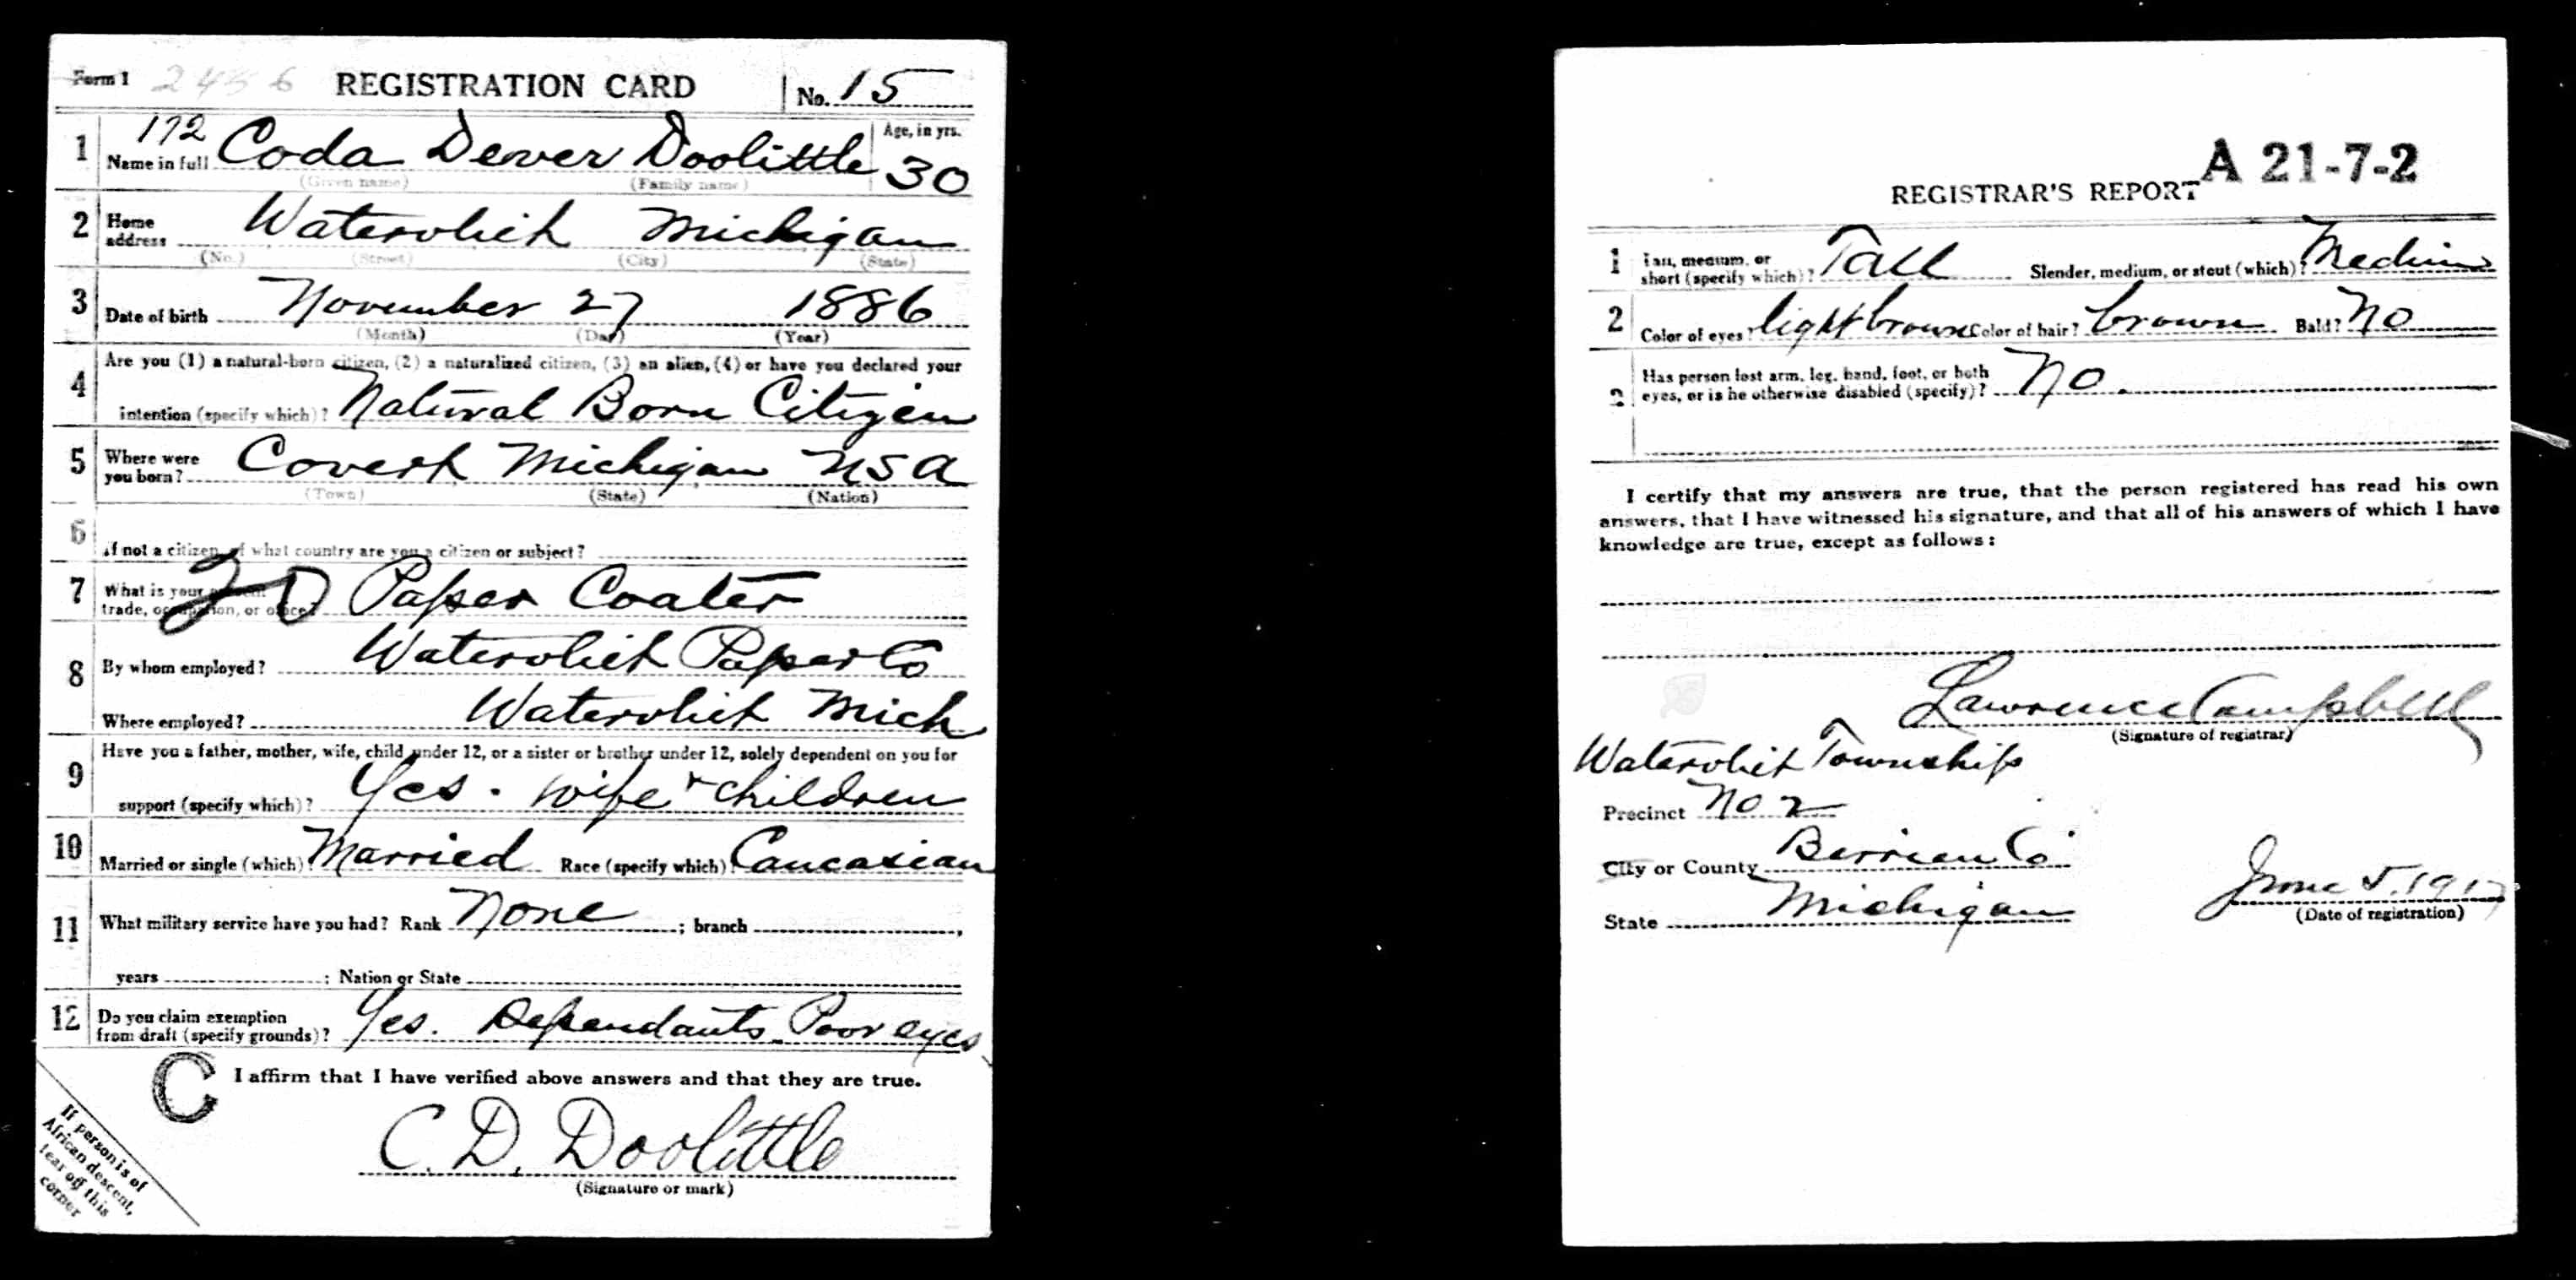 Form 1 2456 REGISTRATION CARD No. 15
172
1 Name in full Coda Dever Doolittle Age, in yrs. 30
(Given name) (Family name)
2 Home address Watervliet Michigan
(No.) (Street) (City) (State)
3 Date of birth November 27 1886
(Month) (Day) (Year)
4 Are you (1) a natural-born citizen, (2) a naturalized citizen, (3) an alien, (4) or have you declared your
intention (specify which)? Natural Born Citizen
5 Where were you born? Covert Michigan USA
(Town) (State) (Nation)
6 If not a citizen, of what country are you a citizen or subject?
7 What is your present trade, occupation, or office? 20 Paper Coater
8 By whom employed? Watervliet Paper Co
Where employed? Watervliet Mich
9 Have you a father, mother, wife, child under 12, or a sister or brother under 12, solely dependent on you for
support (specify which)? Yes. wife + children
10 Married or single (which)? Married Race (specify which)? Caucasian
11 What military service have you had? Rank None ; branch ,
years ; Nation or State
12 Do you claim exemption from draft (specify grounds)? Yes. Dependants Poor eyes
C I affirm that I have verified above answers and that they are true.
C. D. Doolittle
(Signature or mark)
If person is of
African descent,
tear off this
corner
A 21-7-2
REGISTRAR'S REPORT
1 Tall, medium, or short (specify which)? Tall Slender, medium, or stout (which)? Medium
2 Color of eyes? light brown Color of hair? brown Bald? No
3 Has person lost arm, leg, hand, foot, or both eyes, or is he otherwise disabled (specify)? No.
I certify that my answers are true, that the person registered has read his own
answers, that I have witnessed his signature, and that all of his answers of which I have
knowledge are true, except as follows:
Lawrence Campbell
(Signature of registrar)
Watervliet Township
Precinct No 2
City or County Berrien Co
State Michigan
June 5. 1917
(Date of registration)